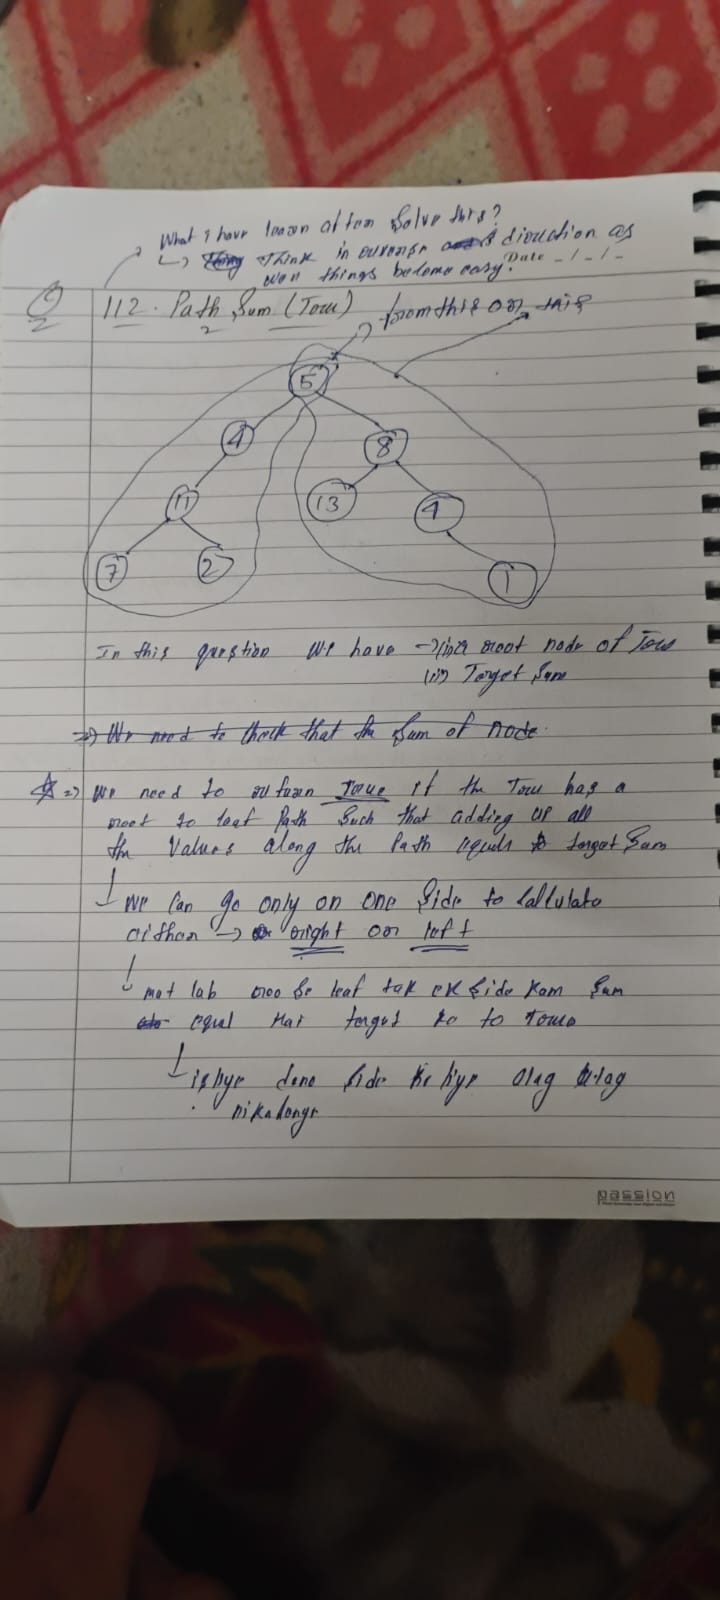 What I have learn after Solve this?
↳ Think in reverse direction as
well things become easy.
Date _/_/_
Q 112. Path Sum (Tree)
from this or this
5
4 8
11 13 4
7 2 1
In this question we have → (i) root node of Tree
(ii) Target Sum
⇒ We need to check that the Sum of node.
☆ ⇒ we need to return True if the Tree has a
root to leaf Path Such that adding up all
the Values along the Path equals to target Sum
↳ we can go only on one Side to Callculate
→ right or left
↳ mat lab root Se leaf tak ek Side Sum
equal Hai target ke to
↳ ishye dono Side ke liye alag alag
nikalenge
passion